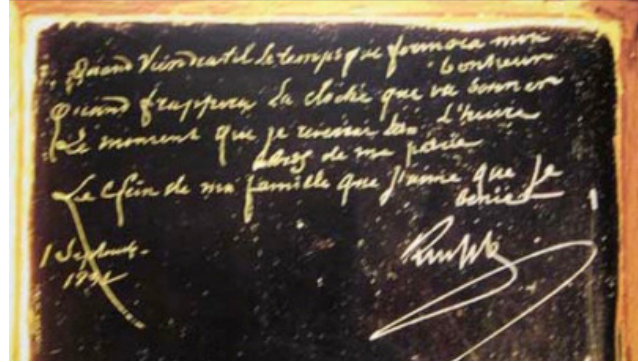 Quand Viendratil le temps que formora mon
bonheur
Quand frappera la cloche que va sonner
l'heure
Le moment que je reverrai
de ma patrie
Le de ma famille que J'aime que Je
benie
1 Septemb.